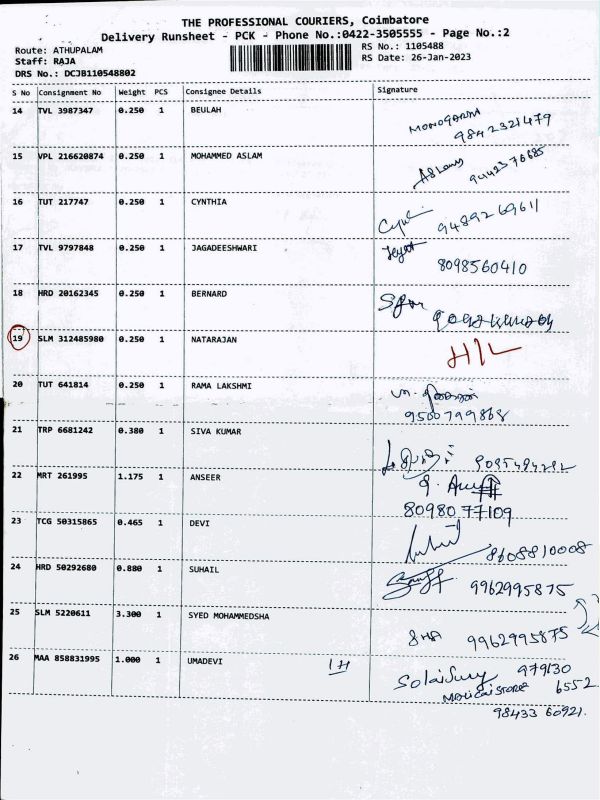 THE PROFESSIONAL COURIERS, Coimbatore
Delivery Runsheet - PCK - Phone No.:0422-3505555 - Page No.:2
Route: ATHUPALAM
RS No.: 1105488
Staff: RAJA
RS Date: 26-Jan-2023
DRS No.: DCJB110548802
S No Consignment No Weight PCS Consignee Details Signature
14 TVL 3987347 0.250 1 BEULAH
9842321479
15 VPL 216620874 0.250 1 MOHAMMED ASLAM Aslam 9442376685
16 TUT 217747 0.250 1 CYNTHIA
9489269611
17 TVL 9797848 0.250 1 JAGADEESHWARI
8098560410
18 HRD 20162345 0.250 1 BERNARD
19 SLM 312485980 0.250 1 NATARAJAN H/L
20 TUT 641814 0.250 1 RAMA LAKSHMI
9500799868
21 TRP 6681242 0.380 1 SIVA KUMAR
9095494292
22 MRT 261995 1.175 1 ANSEER
8098077109
23 TCG 50315865 0.465 1 DEVI
8608810008
24 HRD 50292680 0.880 1 SUHAIL
9962995875
25 SLM 5220611 3.300 1 SYED MOHAMMEDSHA
9962995875
26 MAA 858831995 1.000 1 UMADEVI
979130
6552
98433 60921.